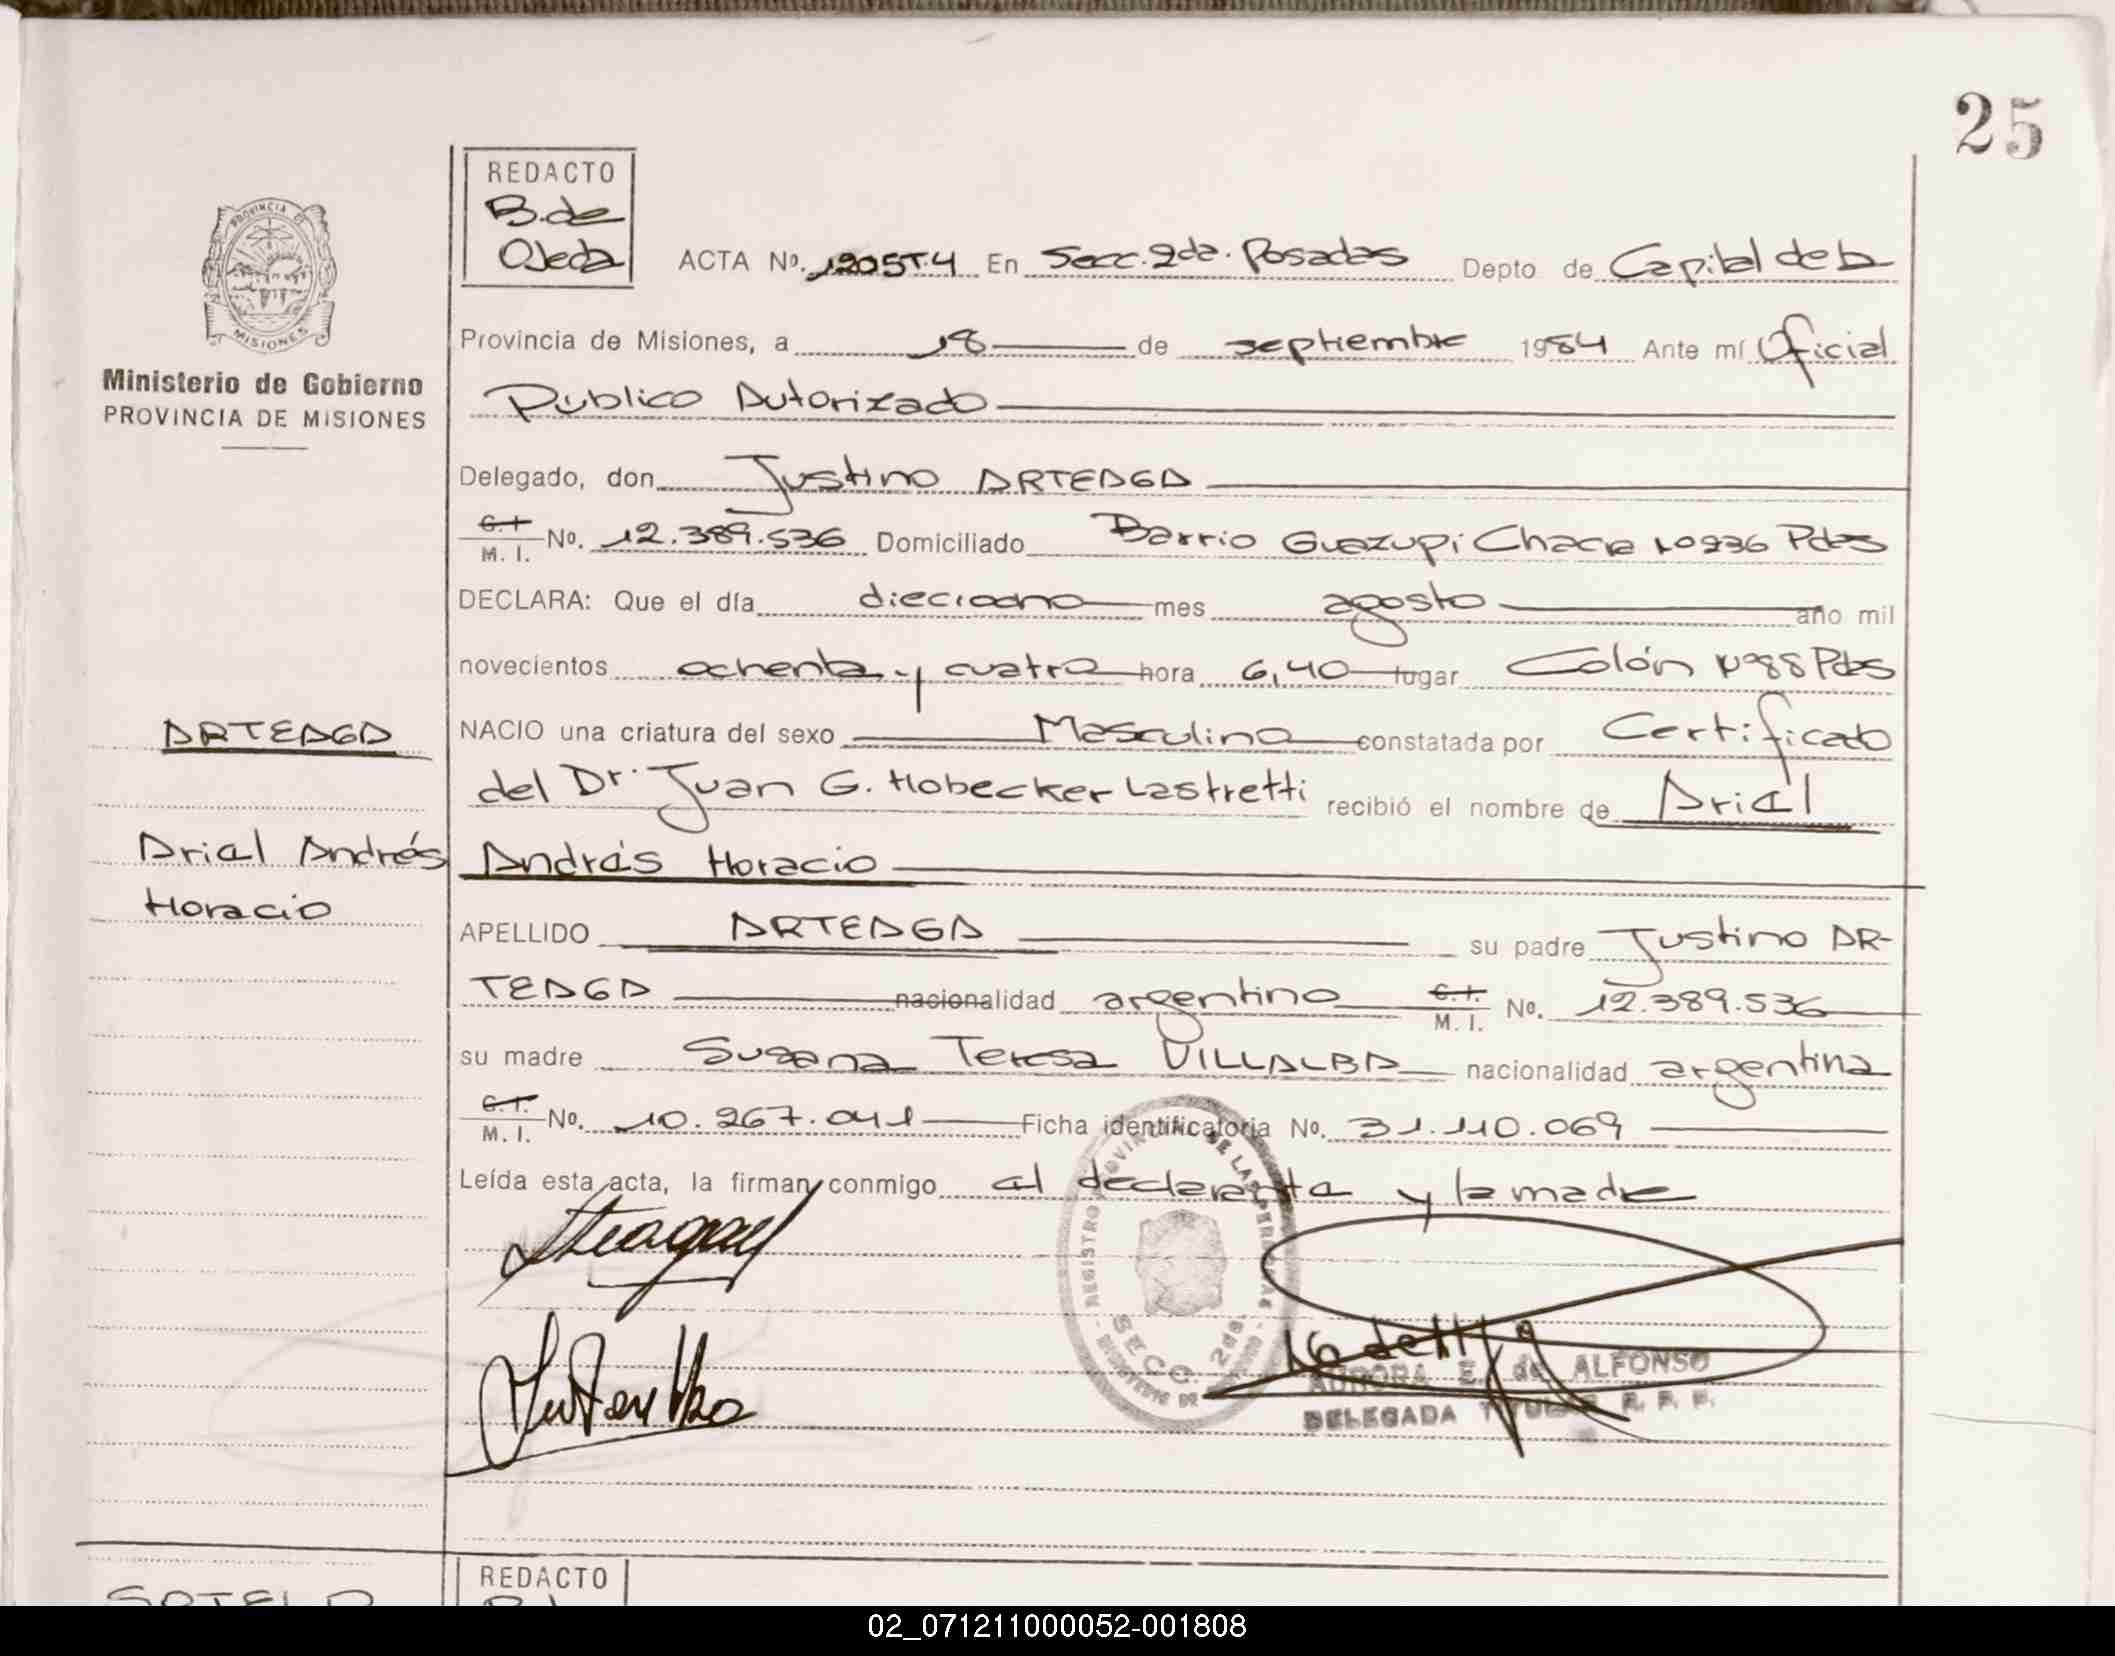 25
REDACTO
B. de
Ojeda
ACTA Nº. 1205T.4 En Secc. 2da. Posadas Depto de Capital de la
Provincia de Misiones, a 18 de septiembre 1984 Ante mí Oficial
Publico Autorizado
Ministerio de Gobierno
PROVINCIA DE MISIONES
Delegado, don Justino ARTEAGA
C.I. M. I. No. 12.389.536 Domiciliado Barrio Guazupi Chacra No 236 Pdas
DECLARA: Que el día dieciocho mes agosto año mil
novecientos ochenta y cuatro hora 6,40 lugar Colón Nº 88 Pdas
ARTEAGA
NACIO una criatura del sexo Masculino constatada por Certificado
del Dr. Juan G. Hobecker Lastretti recibió el nombre de Ariel
Ariel Andrés
Horacio
Andrés Horacio
APELLIDO ARTEAGA su padre Justino AR-
TEAGA nacionalidad argentino C.I. M. I. No. 12.389.536
su madre Susana Teresa VILLALBA nacionalidad argentina
C.I. M. I. No. 10.267.041 Ficha identificatoria No. 31.110.069
Leída esta acta, la firman conmigo el declarante y la madre
REGISTRO PROVINCIAL DE LAS PERSONAS
SECC. 2da.
AURORA E. de ALFONSO
DELEGADA TITULAR R. P. P.
REDACTO
SOTELO
02_071211000052-001808